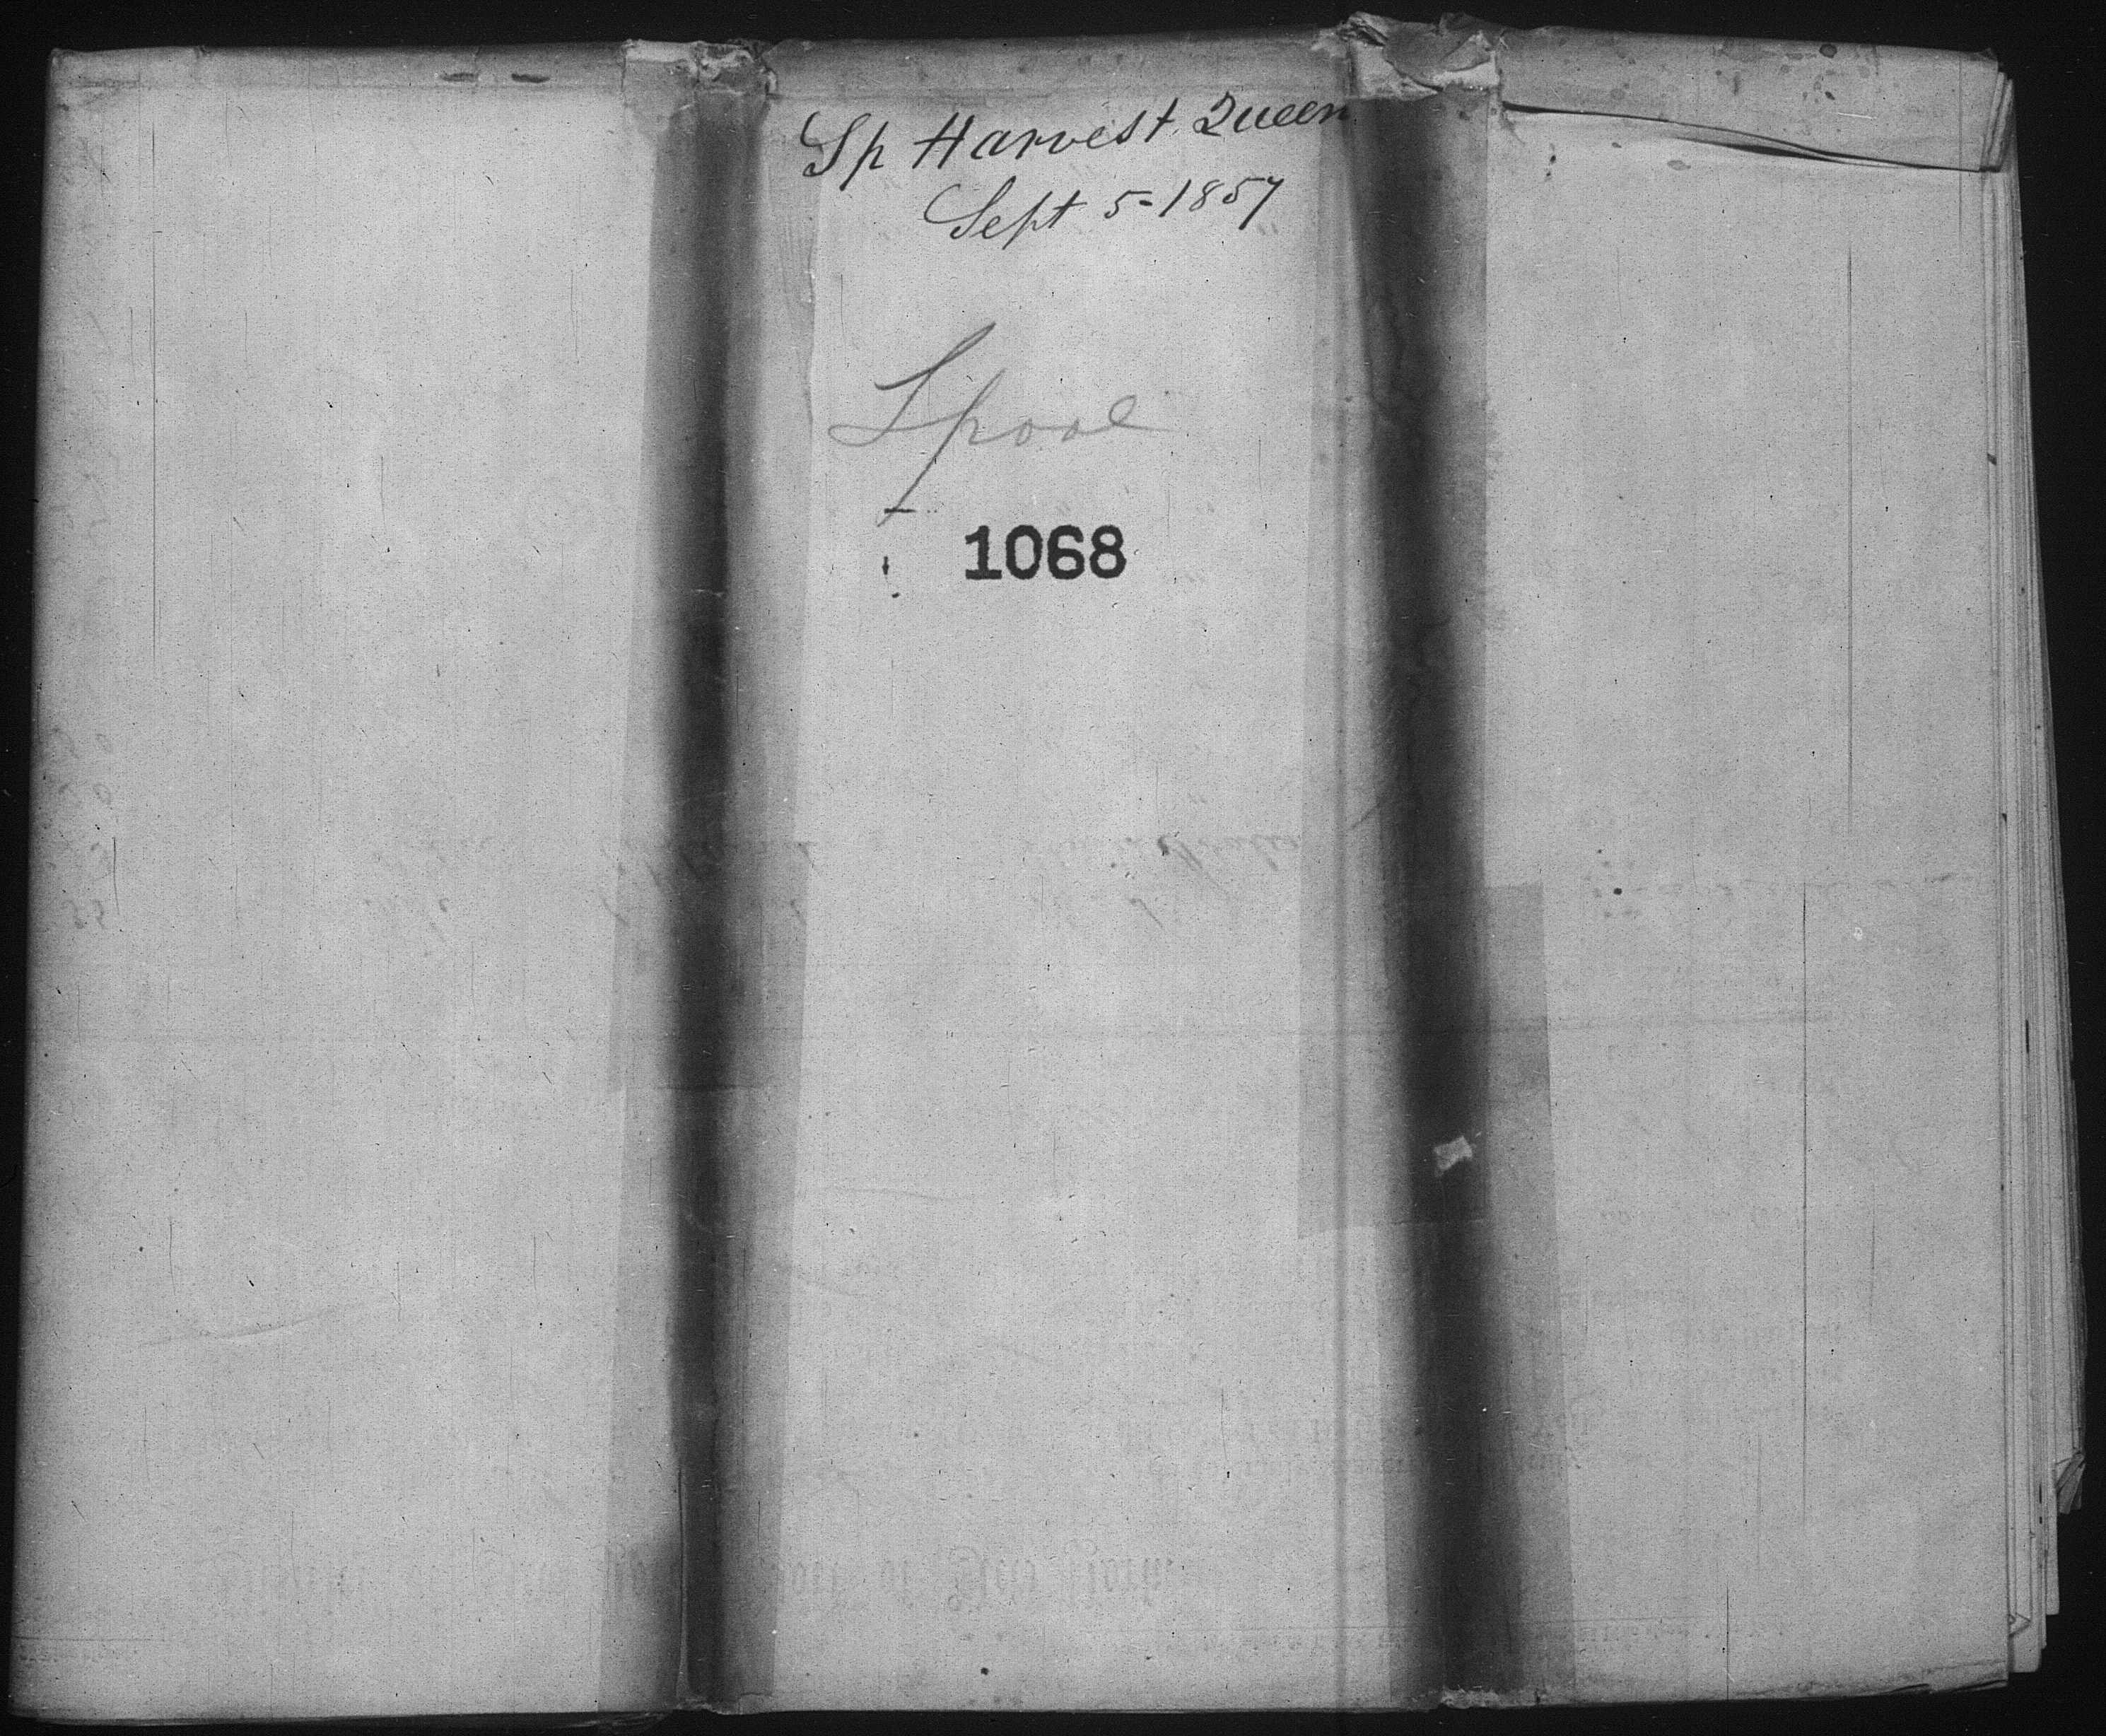 Sp Harvest Queen
Sept 5-1857
Lpool
1068